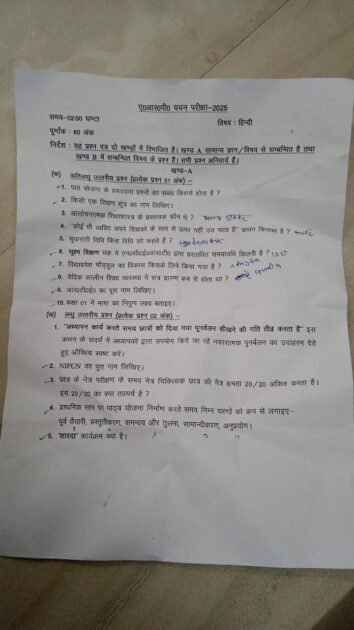 ए0आर0पी0 चयन परीक्षा-2025
समय-02:00 घण्टा
विषय : हिन्दी
पूर्णांक : 60 अंक
निर्देश : यह प्रश्न पत्र दो खण्डों में विभाजित है। खण्ड A सामान्य ज्ञान/विषय से सम्बन्धित है तथा
खण्ड B में सम्बन्धित विषय के प्रश्न है। सभी प्रश्न अनिवार्य हैं।
खण्ड-A
(क) अतिलघु उत्तरीय प्रश्न (प्रत्येक प्रश्न 01 अंक) –
1. पाठ योजना के प्रस्तावना प्रश्नों का संबंध किससे होता है ?
2. किसी एक शिक्षण सूत्र का नाम लिखिए।
3. आलोचनात्मक शिक्षाशास्त्र के प्रस्तावक कौन थे ?
4. "कोई भी व्यक्ति अपने शिक्षकों के स्तर से ऊपर नहीं उठ पाता है" कथन किसका है ?
5. सुकराती विधि किस विधि को कहते हैं ?
6. सूक्ष्म शिक्षण चक्र में एन0सीई0आर0टी0 द्वारा प्रस्तावित समयावधि कितनी है ?
7. विद्याप्रवेश मॉड्यूल का विकास किसके लिये किया गया है ?
8. वैदिक कालीन शिक्षा व्यवस्था में सत्र प्रारम्भ कब से होता था ?
9. आर0टी0ई0 का पूरा नाम लिखिए।
10. कक्षा 01 में भाषा का निपुण लक्ष्य बताइए।
(ख) लघु उत्तरीय प्रश्न (प्रत्येक प्रश्न 02 अंक) –
1. "अध्यापन कार्य करते समय छात्रों को दिया गया पुनर्बलन सीखने की गति तीव्र करता है" इस
कथन के संदर्भ में अध्यापकों द्वारा उपयोग किये जा रहे नकारात्मक पुनर्बलन का उदाहरण देते
हुए औचित्य स्पष्ट करें।
2. NIPUN का पूरा नाम लिखिए।
3. छात्र के नेत्र परीक्षण के समय नेत्र चिकित्सक छात्र की नेत्र क्षमता 20/20 अंकित करता है।
इस 20/20 का क्या तात्पर्य है ?
4. प्राथमिक स्तर पर पाठ्य योजना निर्माण करते समय निम्न चरणों को क्रम से लगाइए–
पूर्व तैयारी, प्रस्तुतीकरण, समन्वय और तुलना, सामान्यीकरण, अनुप्रयोग।
5. 'शारदा' कार्यक्रम क्या है।